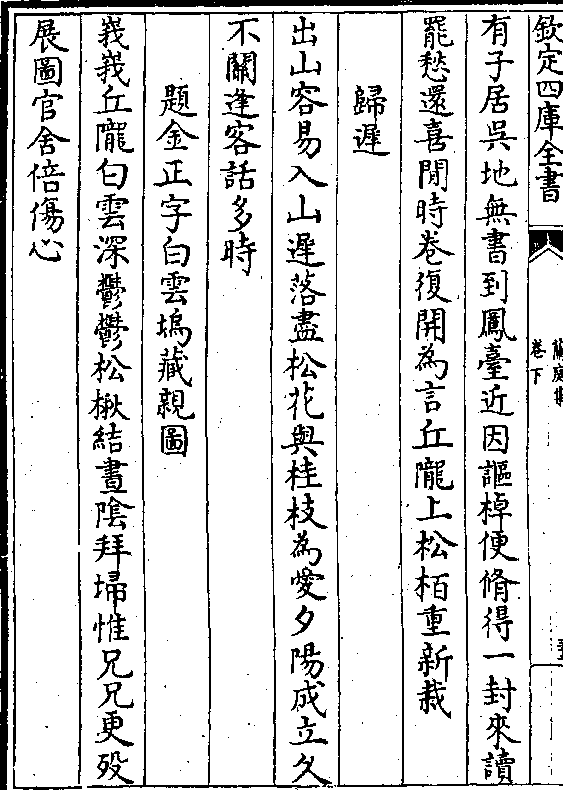 欽定四庫全書
蘭庭集
卷下
有子居吳地無書到鳳臺近因謳棹便脩得一封來讀
罷愁還喜開時卷復開為言丘隴上松栢重新栽
歸遲
出山容易入山遲落盡松花與桂枝為愛夕陽成立久
不關逢客話多時
題金正字白雲塢藏親圖
峩峩丘隴白雲深鬱鬱松楸結晝隂拜埽惟兄兄更歿
展圖官舍倍傷心